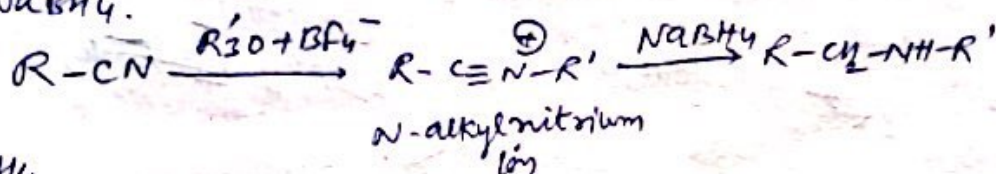 NaBH4.
R-CN R'3O+BF4⁻ R-C≡N⊕-R' NaBH4 R-CH2-NH-R'
N-alkylnitrium
ion